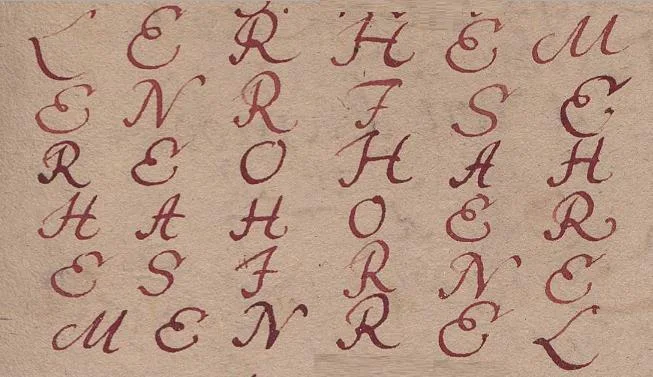 L E R H E M
E N R F S E
R E O H A H
H A H O E R
E S F R N E
M E N R E L